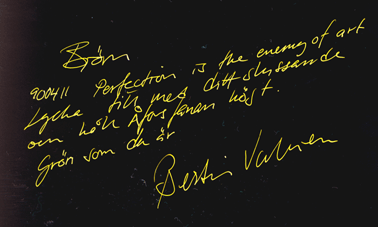 Björn
900411 Perfection is the enemy of art
Lycka till med ditt slyssände
och håll Afors fanan högt.
Grön som du är
Bertil Vallien